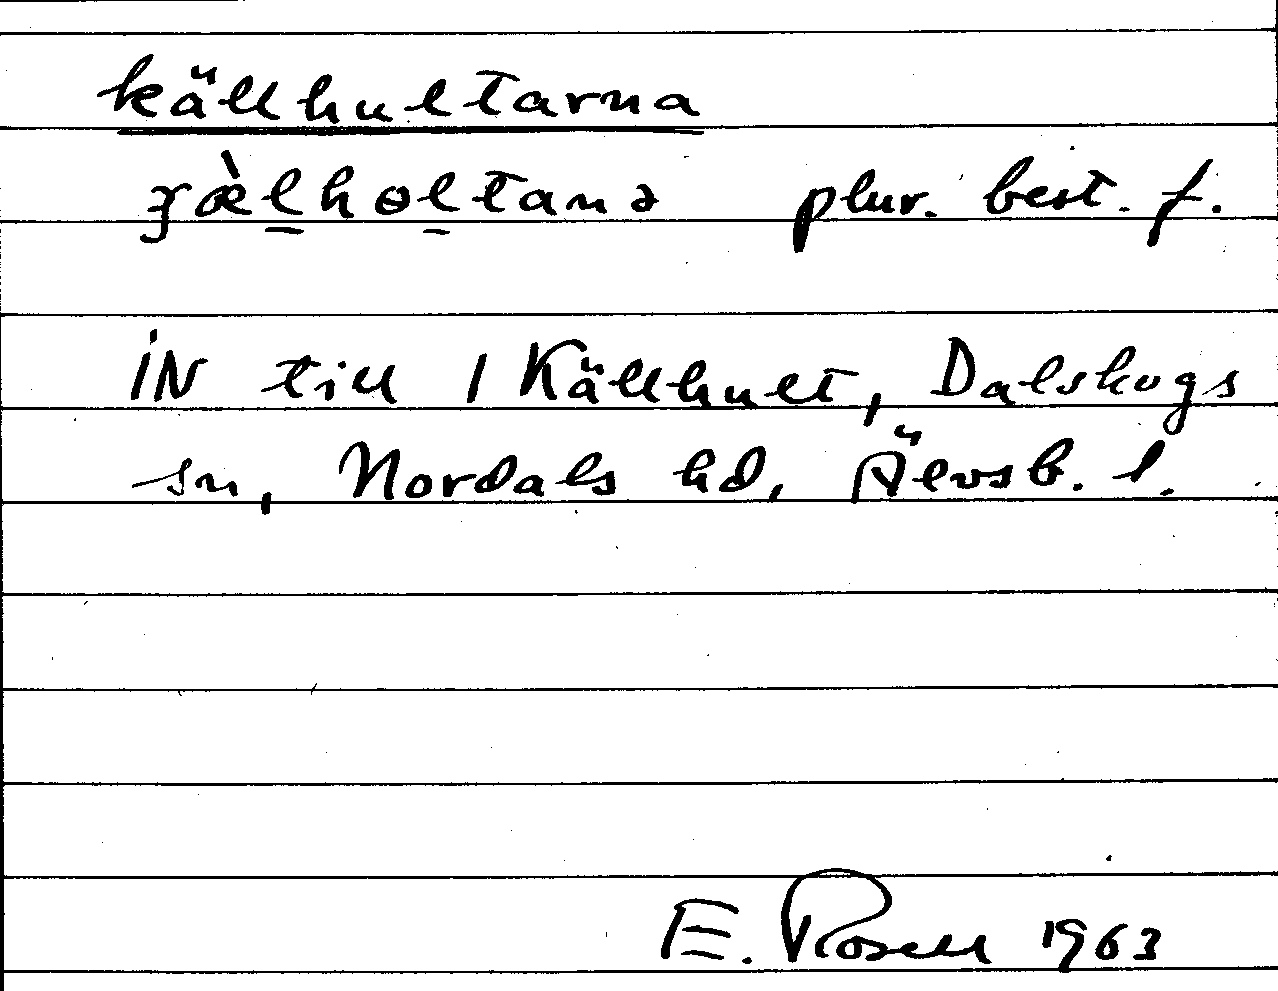 källhultarna
ɟæ̀l̲hol̲tanə plur. best. f.
iN till 1 Källhult, Dalskogs
sn, Nordals hd, Älvsb. l.
E. Rosell 1963